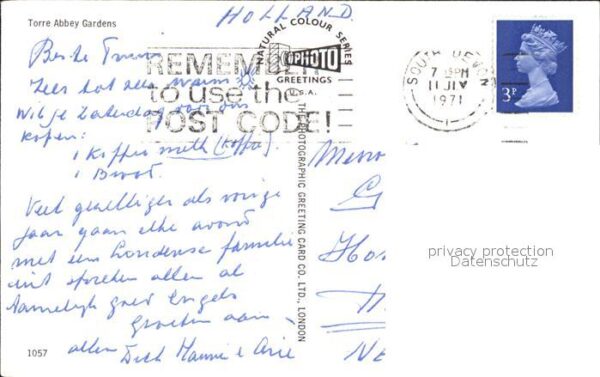 Torre Abbey Gardens
HOLLAND
Beste
REMEMBER
to use the
POST CODE!
NATURAL COLOUR SERIES
PHOTO
GREETINGS
U.S.A.
SOUTH DEVON
7 PM
11 JLY
1971
3P
Zaterdag voor ons
kopen:
1 Koffie melk (Koffie)
1 Brood.
Veel gezelliger als vorige
jaar gaan elke avond
met een Londense familie
uit spreken allen al
tamelijk goed Engels
Groeten aan
allen Dick Mannie & Arie
THE PHOTOGRAPHIC GREETING CARD CO. LTD., LONDON
privacy protection
Datenschutz
1057